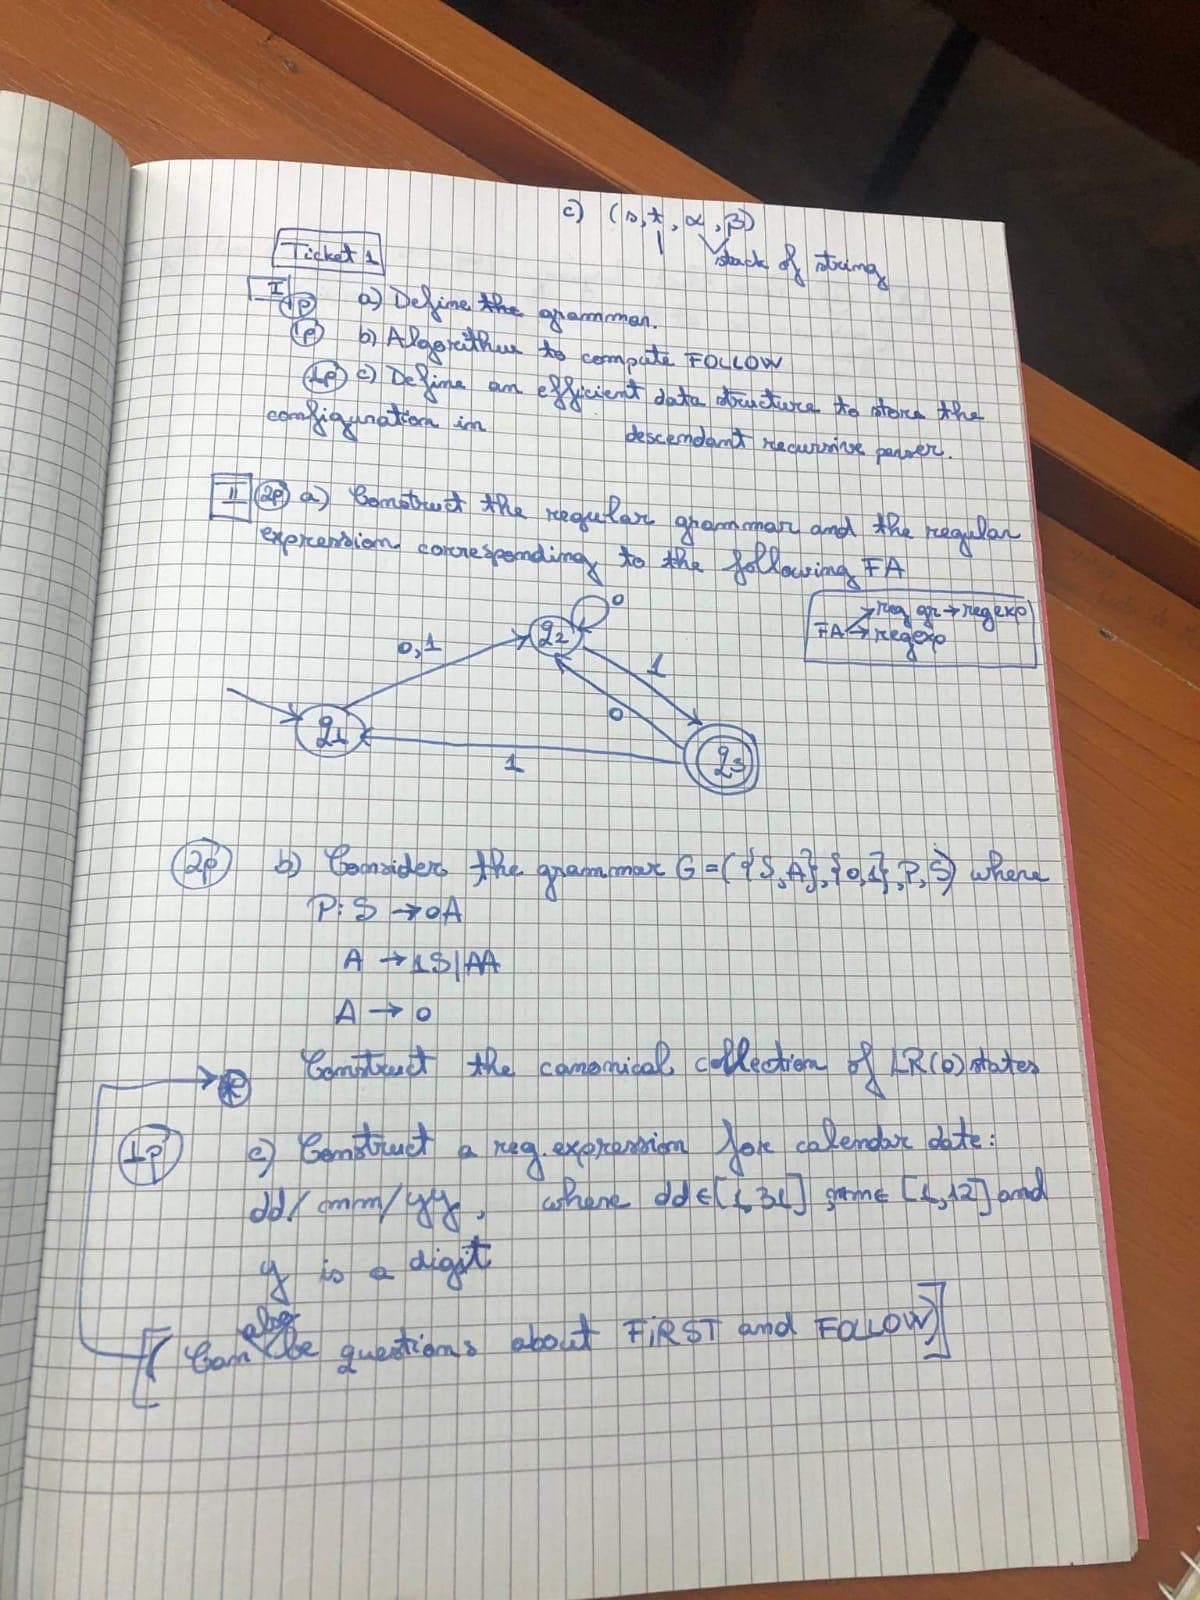 c) (s, t, α, β)
stack of string
Ticket 1
I 1p a) Define the grammar.
1p b) Algorithm to compute FOLLOW
1p c) Define an efficient data structure to store the
configuration in descendant recursive parser.
II 2p a) Construct the regular grammar and the regular
expression corresponding to the following FA
reg gr → reg exp
FA → regexp
0
0,1
q2
1
0
q1
q3
1
2p b) Consider the grammar G = ({S, A}, {0,1}, P, S) where
P: S → 0A
A → 1S | AA
A → 0
Construct the canonical collection of LR(0) states
1p c) Construct a reg. expression for calendar date:
dd/mm/yy, where dd∈[1,31] mm∈[1,12] and
y is a digit
[Can also be questions about FiRST and FOLLOW]